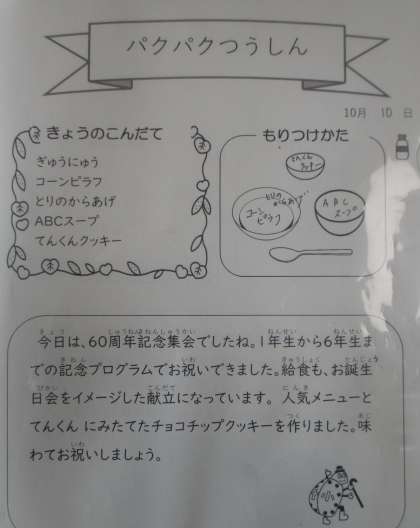 パクパクつうしん
10月 10 日
きょうのこんだて
ぎゅうにゅう
コーンピラフ
とりのからあげ
ABCスープ
てんくんクッキー
もりつけかた
てんくん
クッキー
とりの
からあげ
コーン
ピラフ
ABC
スープ
今日は、60周年記念集会でしたね。1年生から6年生ま
での記念プログラムでお祝いできました。給食も、お誕生
日会をイメージした献立になっています。人気メニューと
てんくん にみたてたチョコチップクッキーを作りました。味
わてお祝いしましょう。